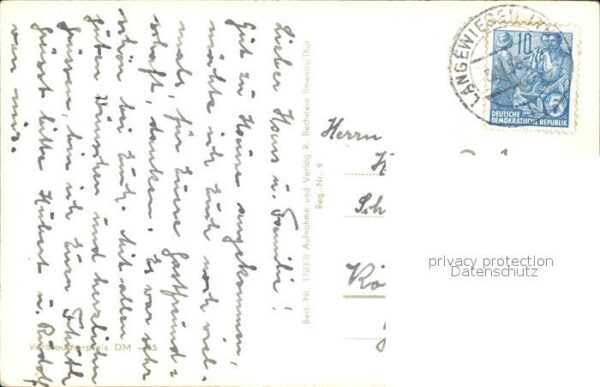 Lieber Hans u. Familie!
Gut zu Hause angekommen,
möchte ich Euch noch viel-
mals, für Eure Gastfreund-
schaft, danken. Es war sehr
schön bei Euch. Mit allen
guten Wünschen und herzlichen
Grüssen, bin ich Euer
Grüsst bitte Hubert u. Rudolf
von mir.
Best.-Nr. 1703/II Aufnahme und Verlag R. Bechstein Ilmenau/Thür.
Reg.-Nr. 9
Verbraucherpreis DM
Herrn
Sch
Kö
LANGEWIESEN
10
DEUTSCHE
DEMOKRATISCHE REPUBLIK
privacy protection
Datenschutz